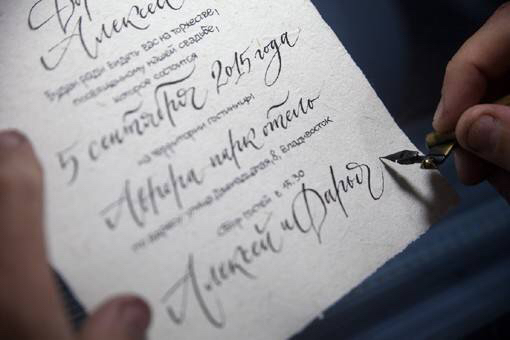 Алексей
Будем рады видеть вас на торжестве,
посвященному нашей свадьбе,
которое состоится
5 сентября 2015 года
на территории гостиницы
Аврора-парк отель
по адресу: улица 8, Владивосток
сбор гостей в 15.30
Алексей и Дарья